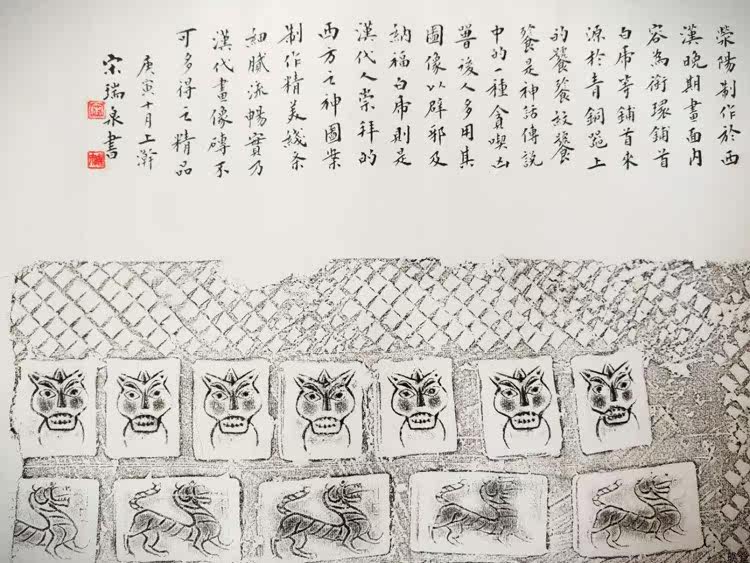 滎陽制作於西
漢晚期畫面内
容為銜環鋪首
白虎等鋪首來
源於青銅器上
的饕餮紋饕
餮是神話傳説
中的一種貪喫凶
獸後人多用其
圖像以辟邪及
納福白虎則是
漢代人崇拜的
西方之神圖案
制作精美綫条
細膩流暢實乃
漢代畫像磚不
可多得之精品
庚寅十月上澣
宋瑞泉書